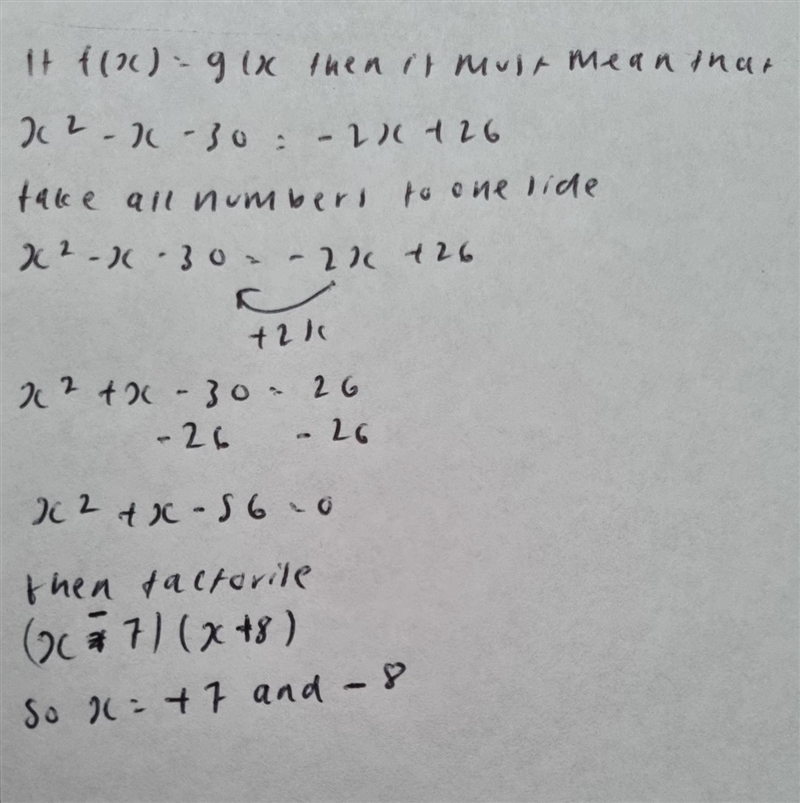 If f(x) = g(x then it must mean that
x² - x - 30 = -2x + 26
take all numbers to one side
x² - x - 30 = -2x + 26
+2x
x² + x - 30 = 26
-26 -26
x² + x - 56 = 0
then factorise
(x - 7)(x + 8)
so x = +7 and -8